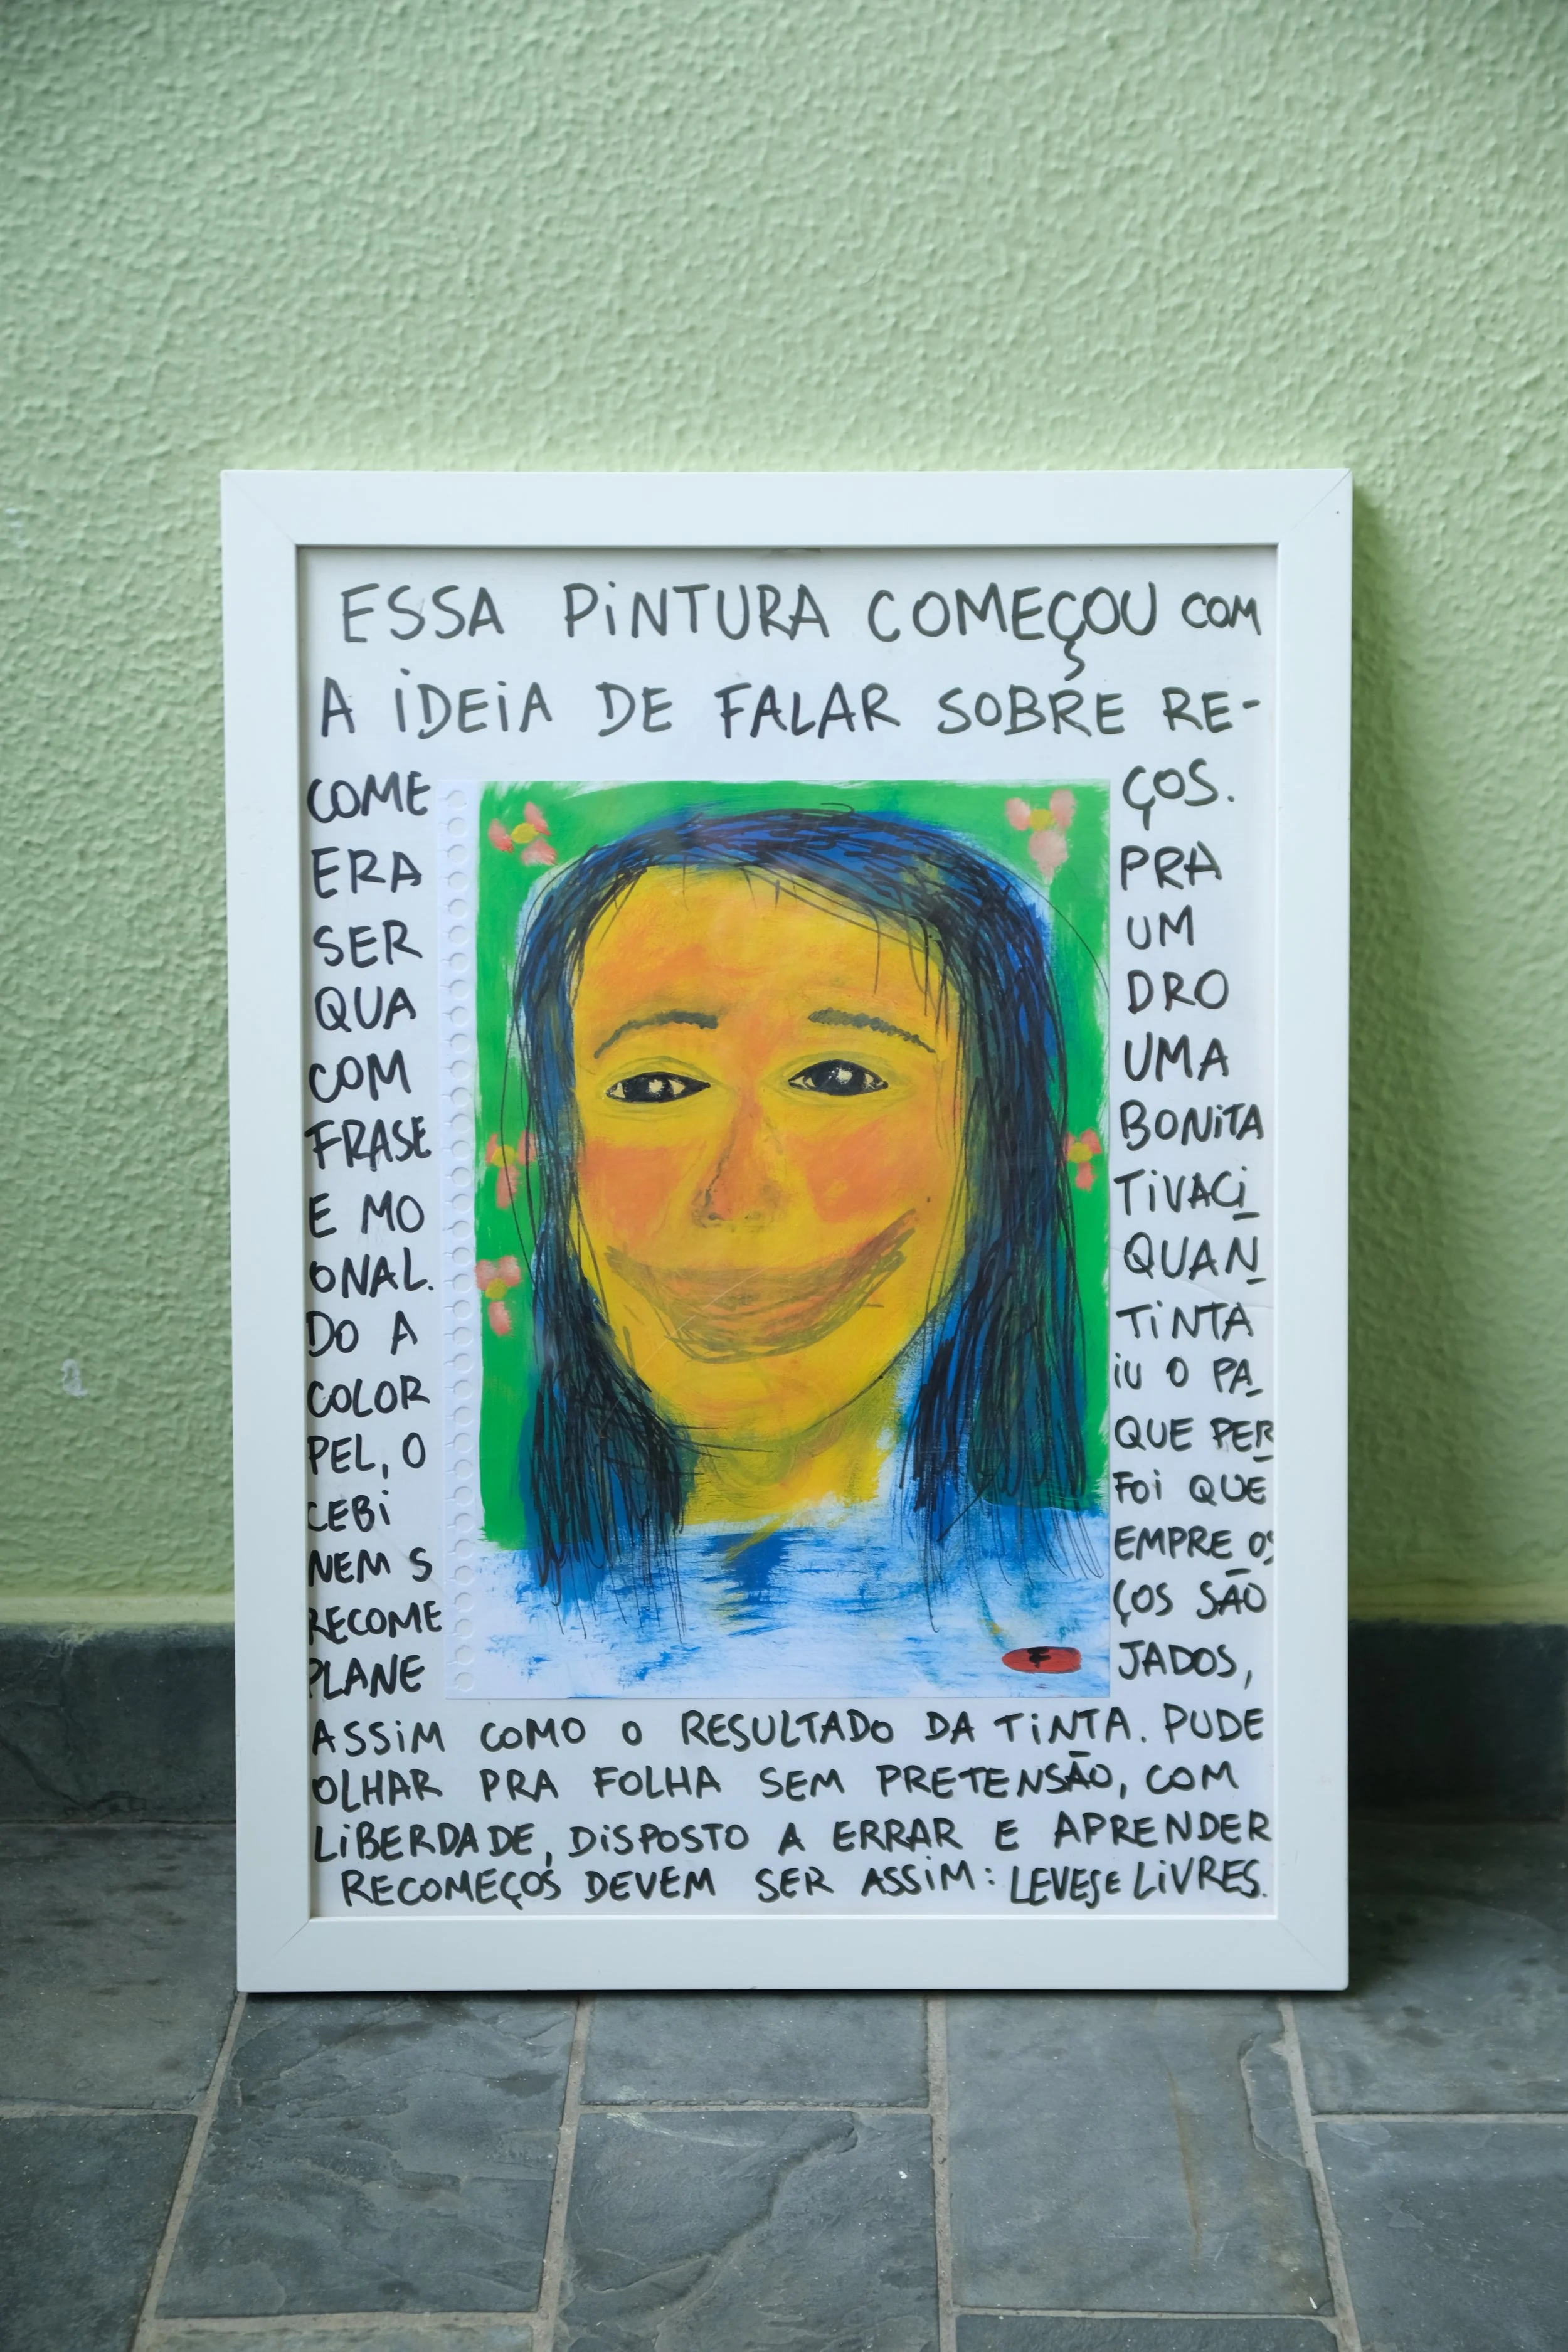 ESSA PINTURA COMEÇOU COM
A IDEIA DE FALAR SOBRE RE-
COME ÇOS.
ERA PRA
SER UM
QUA DRO
COM UMA
FRASE BONITA
E MO TIVACI
ONAL. QUAN
DO A TINTA
COLOR IU O PA
PEL, O QUE PER
CEBI FOI QUE
NEM S EMPRE OS
RECOME ÇOS SÃO
PLANE JADOS,
ASSIM COMO O RESULTADO DA TINTA. PUDE
OLHAR PRA FOLHA SEM PRETENSÃO, COM
LIBERDADE, DISPOSTO A ERRAR E APRENDER
RECOMEÇOS DEVEM SER ASSIM: LEVES E LIVRES.